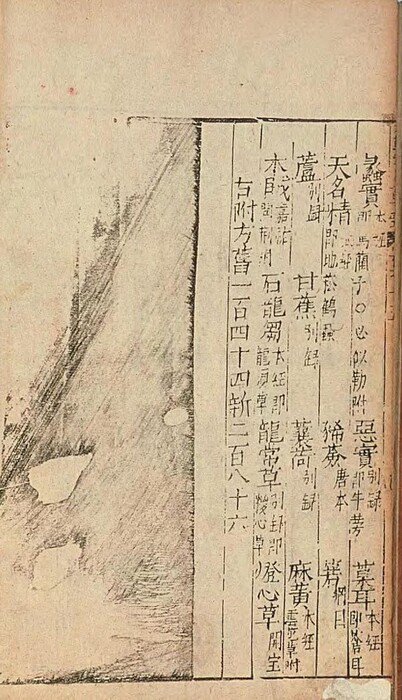 蠡實本經即馬藺子○必似勒附 惡實別錄即牛蒡 葈耳本經即蒼耳
天名精本經即地菘鶴蝨 豨薟唐本 箬綱目
蘆別錄 甘蕉別錄 蘘荷別錄 麻黃本經雲花草附
木賊嘉祐問荊附 石龍芻本經即龍鬚草 龍常草別錄即糉心草 燈心草開寶
右附方舊一百四十四新二百八十六